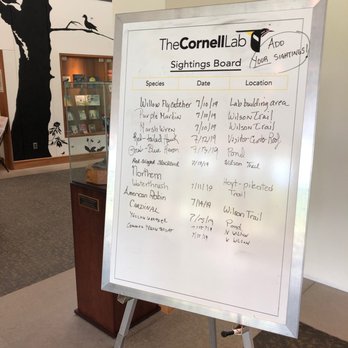 The Cornell Lab
ADD YOUR SIGHTINGS!
Sightings Board
Species Date Location
Willow Flycatcher 7/10/19 Lab building area
Purple Martin 7/10/19 Wilson Trail
Marsh Wren 7/10/19 Wilson Trail
Red-tailed Hawk 7/12/19 Visitor Center Roof
Great Blue Heron 7/13/19 Pond
Red-Winged Blackbird 7/13/19 Wilson Trail
Northern
Waterthrush 7/11/19 Trail
American Robin 7/14/19
CARDINAL Wilson Trail
Pond
Common Yellowthroat